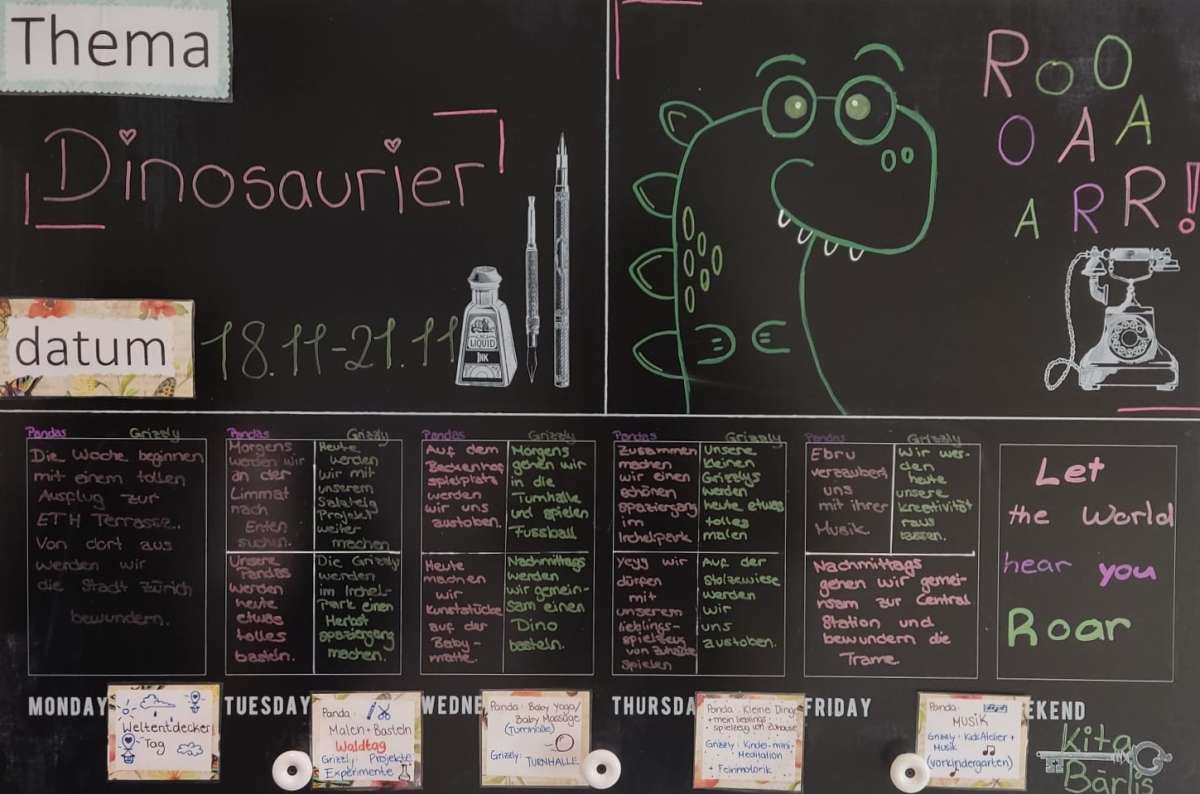 Thema
Dinosaurier
datum
18.11-21.11
LIQUID
INK
RoO
OAA
ARR!
Pandas Grizzly
Die Woche beginnen
mit einem tollen
Ausflug zur
ETH Terrasse.
Von dort aus
werden wir
die Stadt Zürich
bewundern.
Pandas
Morgens
werden wir
an der
Limmat
nach
Enten
suchen.
Grizzly
Heute
werden
wir mit
unserem
Projekt
weiter
machen
Unsere
Pandas
werden
heute
etwas
tolles
basteln.
Die Grizzly
werden
im Irchel-
Park einen
Herbst
spaziergang
machen.
Pandas
Auf dem
Beckenhof
spielplatz
werden
wir uns
austoben.
Grizzly
Morgens
gehen wir
in die
Turnhalle
und spielen
Fussball
Heute
machen
wir
Kunststücke
auf der
Baby-
matte.
Nachmittags
werden
wir gemein-
sam einen
Dino
basteln.
Pandas
Zusammen
machen
wir einen
schönen
spaziergang
im
Irchelpark
Grizzly
Unsere
kleinen
Grizzlys
werden
heute etwas
tolles
malen
Yeyy wir
dürfen
mit
unserem
lieblings-
spielzeug
von Zuhause
spielen
Auf der
Stolzewiese
werden
wir
uns
austoben.
Pandas
Ebru
verzaubert
uns
mit ihrer
Musik.
Grizzly
Wir wer-
den
heute
unsere
Kreativität
raus
lassen.
Nachmittags
gehen wir gemei-
nsam zur Central
Station und
bewundern die
Trame.
Let
the World
hear you
Roar
MONDAY
TUESDAY
WEDNE
THURSDA
FRIDAY
EKEND
Weltentdecker
Tag
Panda:
Malen + Basteln
Waldtag
Grizzly: Projekte
Experimente
Panda: Baby Yoga/
Baby Massage
(Turnhalle)
Grizzly: TURNHALLE
Panda: Kleine Dinge
+ mein lieblings-
spielzeug von Zuhause
Grizzly: Kinder-mini-
Meditation
+ Feinmotorik
Panda:
MUSIK
Grizzly: KidsAtelier +
Musik
(Vorkindergarten)
kita
Bärlis